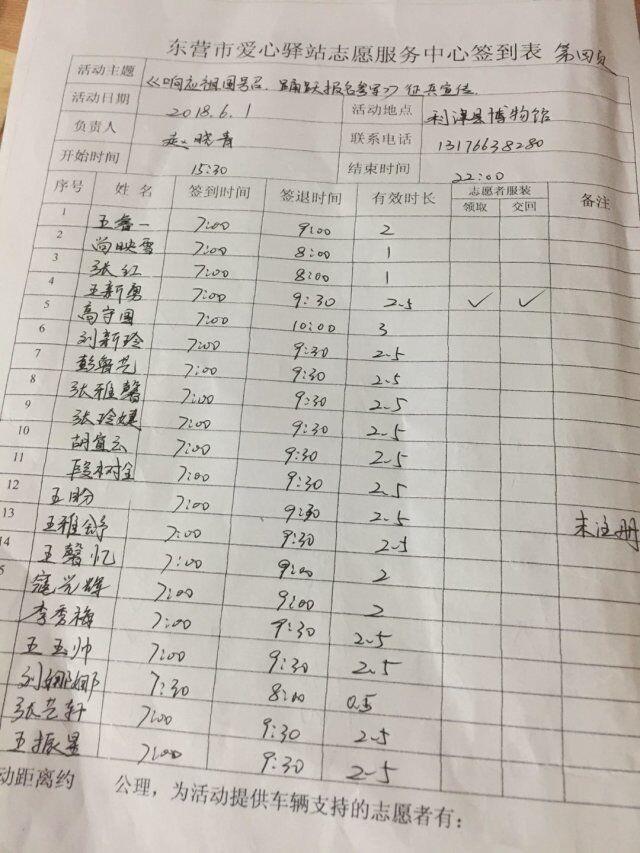 东营市爱心驿站志愿服务中心签到表 第四页
活动主题 《响应祖国号召，踊跃报名参军》征兵宣传.
活动日期 2018.6.1 活动地点 利津县博物馆
负责人 赵晓青 联系电话 13176638280
开始时间 15:30 结束时间 22:00
序号 姓名 签到时间 签退时间 有效时长 志愿者服装 备注
领取 交回
1 王馨一 7:00 9:00 2
2 尚映雪 7:00 8:00 1
3 张红 7:00 8:00 1
4 王新勇 7:00 9:30 2.5 ✓ ✓
5 高守国 7:00 10:00 3
6 刘新玲 7:00 9:30 2.5
7 彭馨艺 7:00 9:30 2.5
8 张雅馨 7:00 9:30 2.5
9 张玲婕 7:00 9:30 2.5
10 胡宜云 7:00 9:30 2.5
11 段树全 7:00 9:30 2.5
12 王盼 7:00 9:30 2.5
13 王雅舒 7:00 9:30 2.5 未注册
14 王馨忆 7:00 9:00 2
5 寇光辉 7:00 9:00 2
李秀梅 7:00 9:30 2.5
王玉帅 7:00 9:30 2.5
刘娜娜 7:30 8:00 0.5
张艺轩 7:00 9:30 2.5
王振星 7:00 9:30 2.5
动距离约 公理，为活动提供车辆支持的志愿者有：